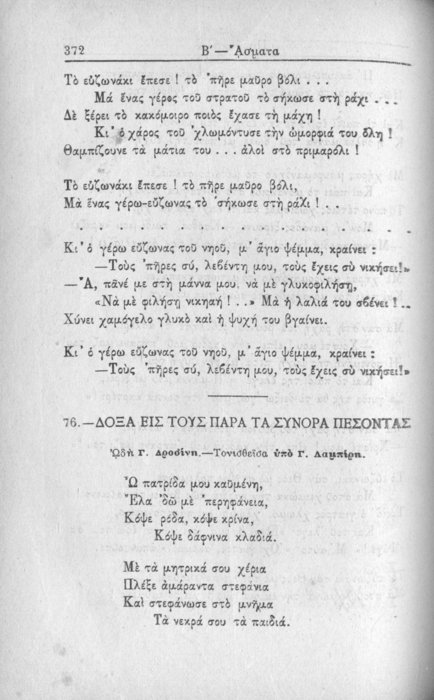 372 Β΄—ᾎσματα
Τὸ εὐζωνάκι ἔπεσε ! τὸ ’πῆρε μαῦρο βόλι . . .
Μά ἕνας γέρος τοῦ στρατοῦ τὸ σήκωσε στὴ ράχι . . .
Δὲ ξέρει τὸ κακόμοιρο ποιὸς ἔχασε τὴ μάχη !
Κι’ ὁ χάρος τοῦ ’χλωμόντυσε τὴν ὠμορφιά του ὅλη !
Θαμπίζουνε τὰ μάτια του . . . ἀλοὶ στὸ πριμαρόλι !
Τὸ εὐζωνάκι ἔπεσε ! τὸ πῆρε μαῦρο βόλι,
Μὰ ἕνας γέρω-εὔζωνας τὸ ’σήκωσε στὴ ράχι ! . .
Κι’ ὁ γέρω εὔζωνας τοῦ νῃοῦ, μ’ ἅγιο ψέμμα, κραίνει :
—Τοὺς ’πῆρες σύ, λεβέντη μου, τοὺς ἔχεις σὺ νικήσει!»
—Ἄ, πᾶνέ με στὴ μάννα μου, νὰ μὲ γλυκοφιλήσῃ,
«Νὰ μὲ φιλήσῃ νικηαή ! . .» Μὰ ἡ λαλιά του σβένει ! ..
Χύνει χαμόγελο γλυκὸ καὶ ἡ ψυχή του βγαίνει.
Κι’ ὁ γέρω εὔζωνας τοῦ νῃοῦ, μ’ ἅγιο ψέμμα, κραίνει :
—Τοὺς ’πῆρες σύ, λεβέντη μου, τοὺς ἔχεις σὺ νικήσει!»
76.—ΔΟΞΑ ΕΙΣ ΤΟΥΣ ΠΑΡΑ ΤΑ ΣΥΝΟΡΑ ΠΕΣΟΝΤΑΣ
ᾨδὴ Γ. Δροσίνη.—Τονισθεῖσα ὑπὸ Γ. Λαμπίρη.
Ὦ πατρίδα μου καϋμένη,
Ἔλα ’δῶ μὲ ’περηφάνεια,
Κόψε ρόδα, κόψε κρίνα,
Κόψε δάφνινα κλαδιά.
Μὲ τὰ μητρικά σου χέρια
Πλέξε ἀμάραντα στεφάνια
Καὶ στεφάνωσε στὸ μνῆμα
Τὰ νεκρά σου τὰ παιδιά.